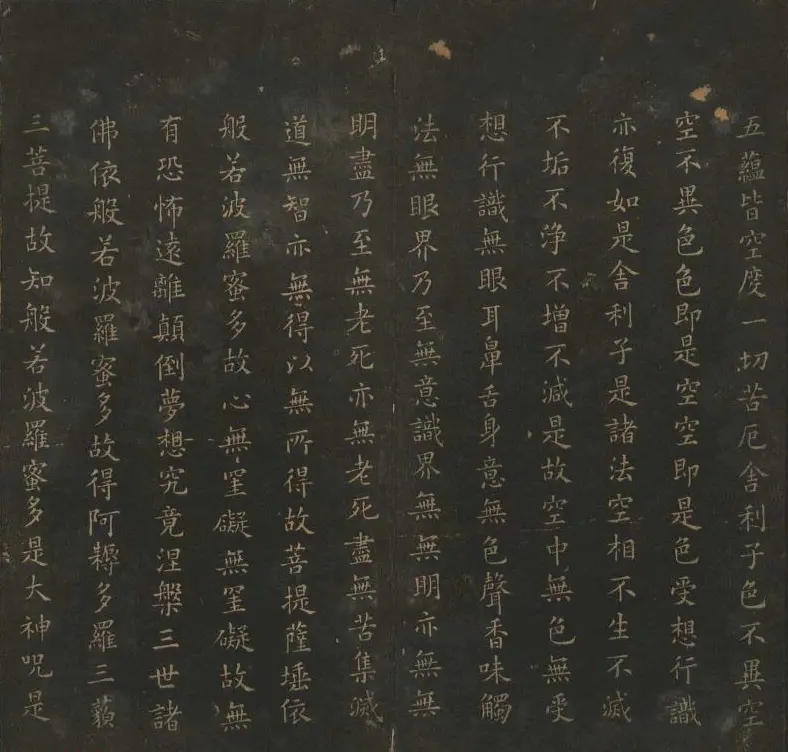 五蘊皆空度一切苦厄舍利子色不異空
空不異色色即是空空即是色受想行識
亦復如是舍利子是諸法空相不生不滅
不垢不淨不增不減是故空中無色無受
想行識無眼耳鼻舌身意無色聲香味觸
法無眼界乃至無意識界無無明亦無無
明盡乃至無老死亦無老死盡無苦集滅
道無智亦無得以無所得故菩提薩埵依
般若波羅蜜多故心無罣礙無罣礙故無
有恐怖遠離顛倒夢想究竟涅槃三世諸
佛依般若波羅蜜多故得阿耨多羅三藐
三菩提故知般若波羅蜜多是大神咒是